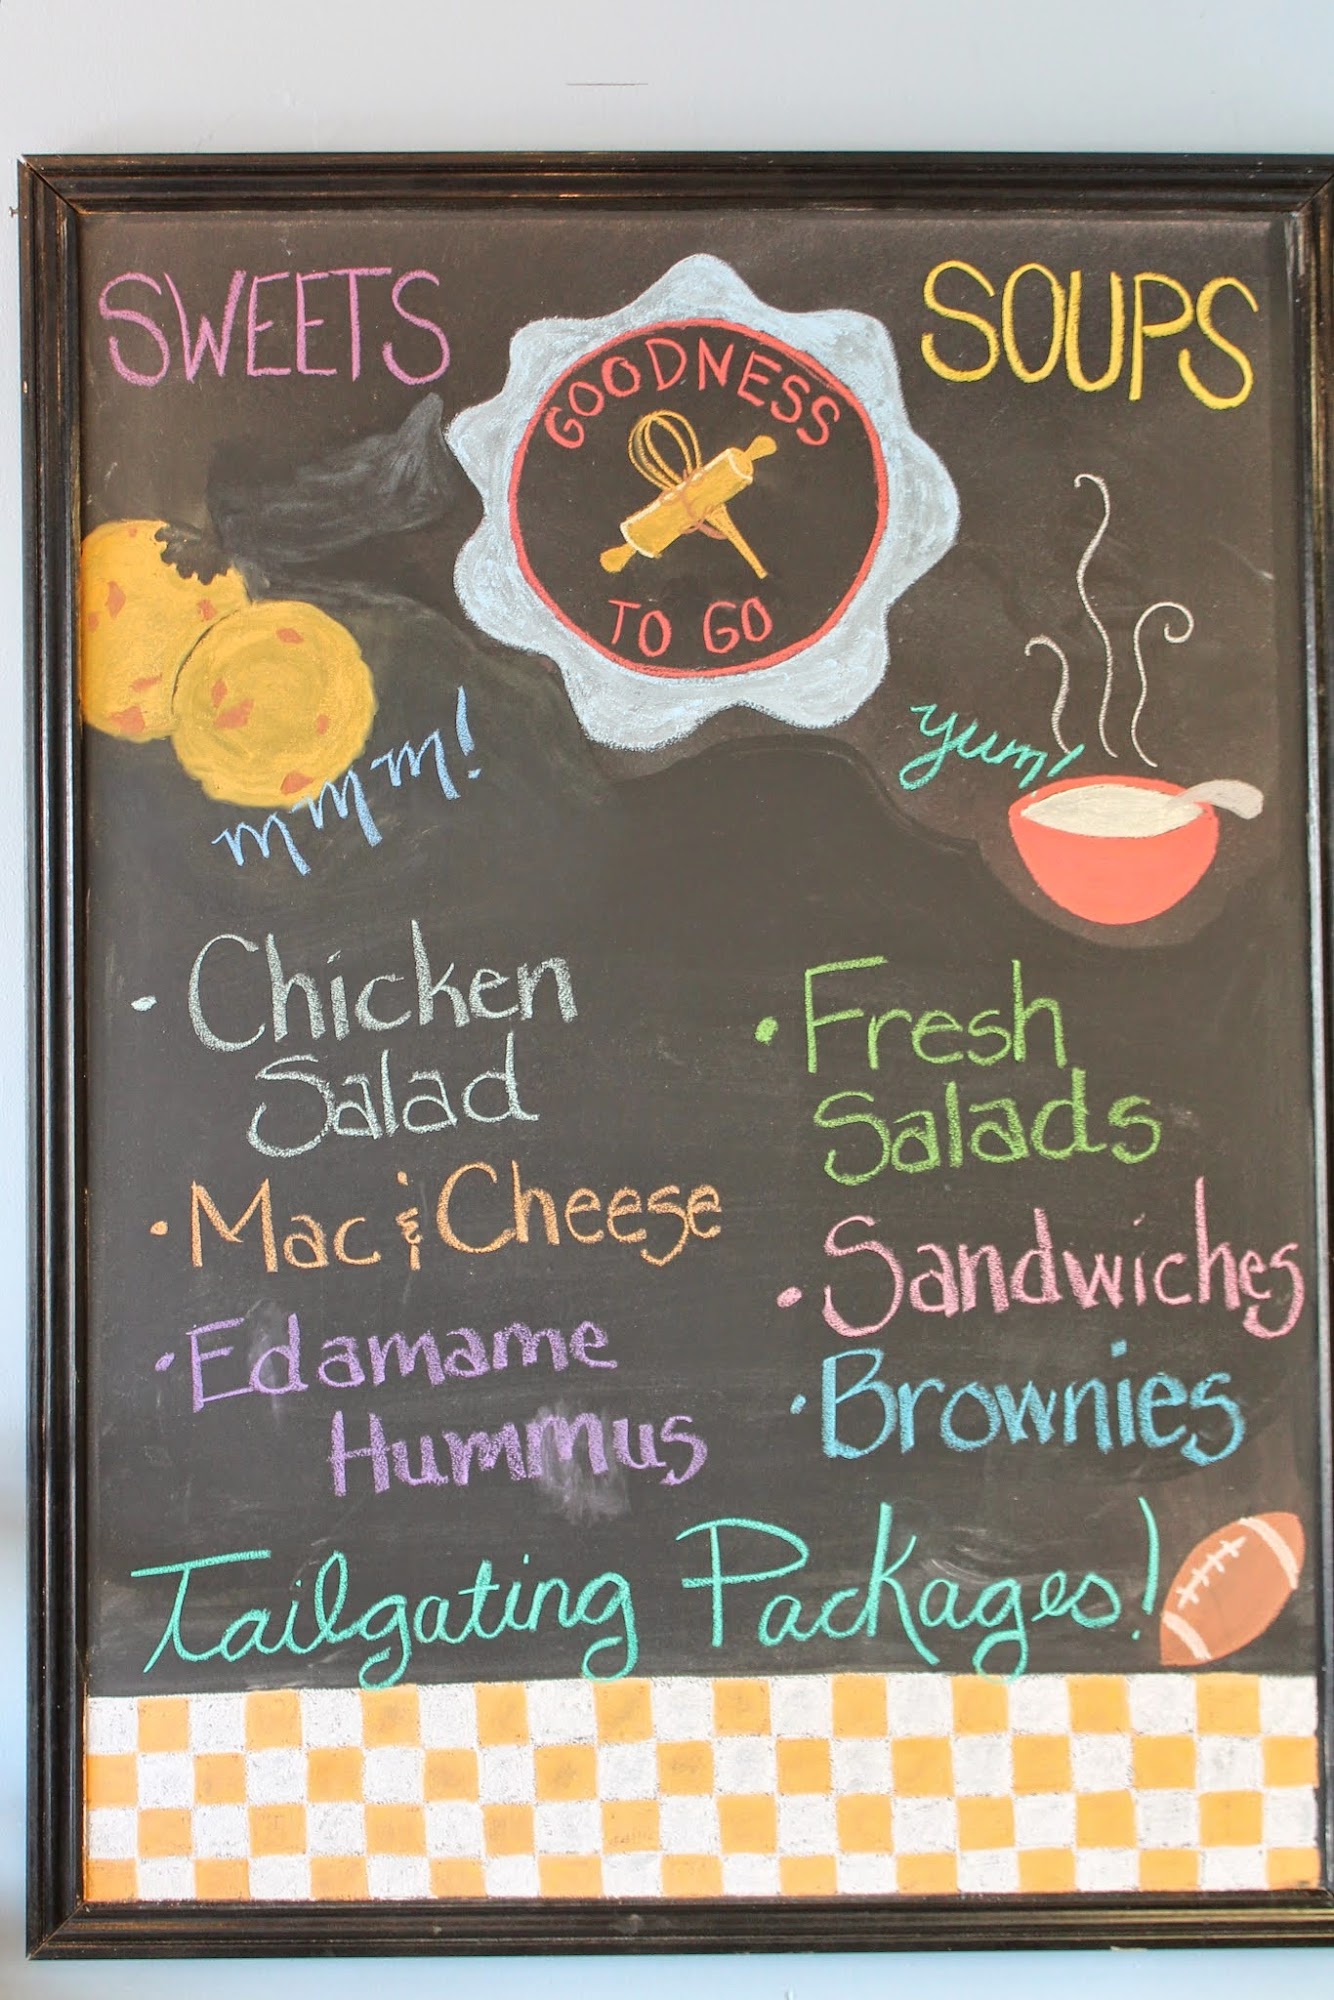 SWEETS
SOUPS
GOODNESS
TO GO
mmm!
yum!
• Chicken
Salad
• Mac & Cheese
• Edamame
Hummus
• Fresh
Salads
• Sandwiches
• Brownies
Tailgating Packages!